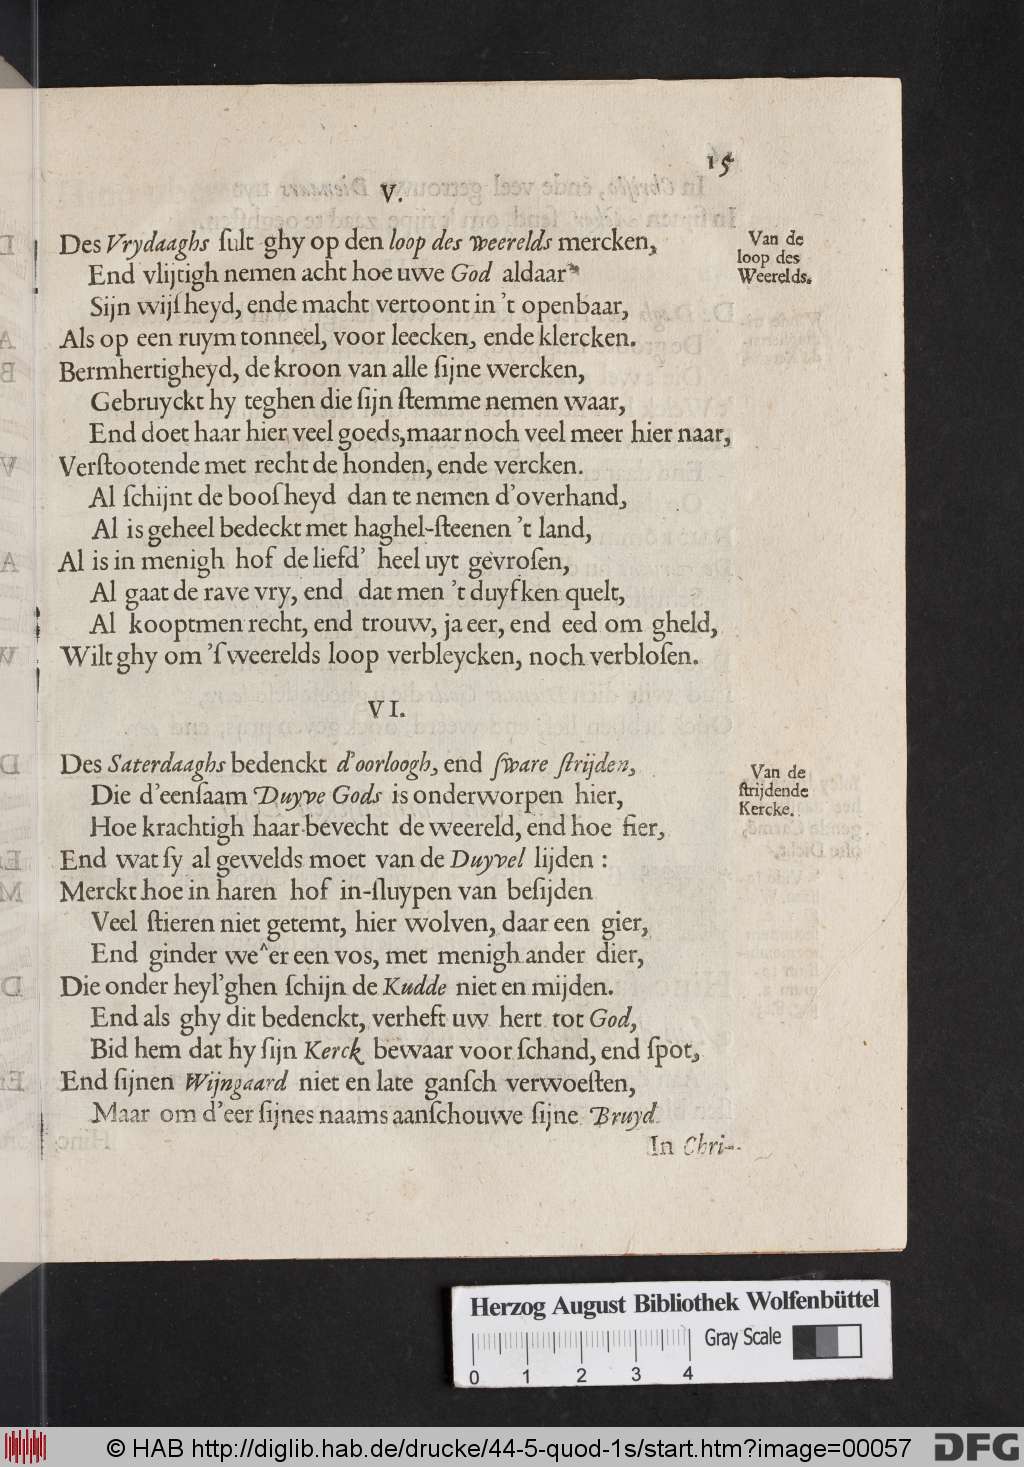 15
V.
Des Vrydaaghs ſult ghy op den loop des weerelds mercken,
Van de
loop des
Weerelds.
End vlijtigh nemen acht hoe uwe God aldaar
Sijn wijſheyd, ende macht vertoont in 't openbaar,
Als op een ruym tonneel, voor leecken, ende klercken.
Bermhertigheyd, de kroon van alle ſijne wercken,
Gebruyckt hy teghen die ſijn ſtemme nemen waar,
End doet haar hier veel goeds, maar noch veel meer hier naar,
Verſtootende met recht de honden, ende vercken.
Al ſchijnt de booſheyd dan te nemen d'overhand,
Al is geheel bedeckt met haghel-ſteenen 't land,
Al is in menigh hof de liefd' heel uyt gevroſen,
Al gaat de rave vry, end dat men 't duyfken quelt,
Al kooptmen recht, end trouw, ja eer, end eed om gheld,
Wilt ghy om 'ſweerelds loop verbleycken, noch verbloſen.
VI.
Des Saterdaaghs bedenckt d'oorloogh, end ſware ſtrijden,
Van de
ſtrijdende
Kercke.
Die d'eenſaam Duyve Gods is onderworpen hier,
Hoe krachtigh haar bevecht de weereld, end hoe fier,
End wat ſy al gewelds moet van de Duyvel lijden :
Merckt hoe in haren hof in-ſluypen van beſijden
Veel ſtieren niet getemt, hier wolven, daar een gier,
End ginder we^er een vos, met menigh ander dier,
Die onder heyl'ghen ſchijn de Kudde niet en mijden.
End als ghy dit bedenckt, verheft uw hert tot God,
Bid hem dat hy ſijn Kerck bewaar voor ſchand, end ſpot,
End ſijnen Wijngaard niet en late ganſch verwoeſten,
Maar om d'eer ſijnes naams aanſchouwe ſijne Bruyd
In Chri-
Herzog August Bibliothek Wolfenbüttel
Gray Scale
0 1 2 3 4
© HAB http://diglib.hab.de/drucke/44-5-quod-1s/start.htm?image=00057
DFG